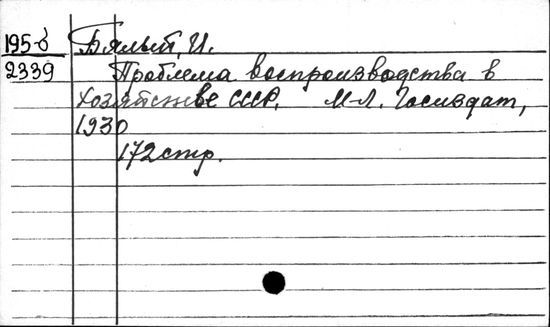 195-б Бялый, И.
2339 Проблема воспроизводства в
хозяйстве СССР. М-Л. Госиздат,
1930
172 стр.